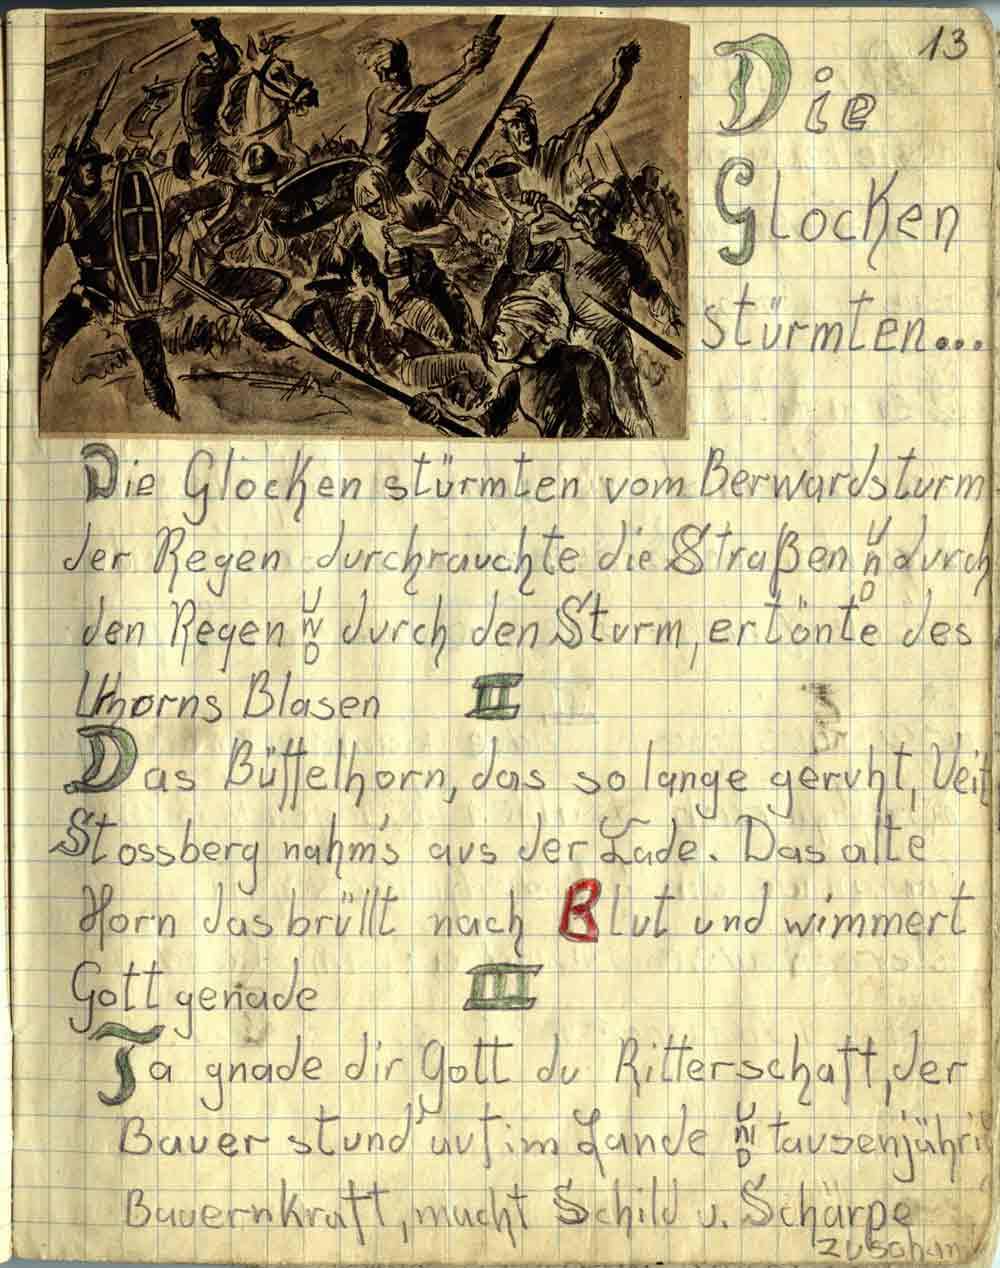 13
Die
Glocken
stürmten...
Die Glocken stürmten vom Berwardsturm
der Regen durchrauchte die Straßen UND durch
den Regen UND durch den Sturm, ertönte des
Uhorns Blasen II
Das Büffelhorn, das so lange geruht, Veit
Stossberg nahm's aus der Lade. Das alte
Horn das brüllt nach Blut und wimmert
Gott genade III
Ja gnade dir Gott du Ritterschaft, der
Bauer stund auf im Lande UND tausenjähri
Bauernkraft, macht Schild u. Schärpe
zuschan